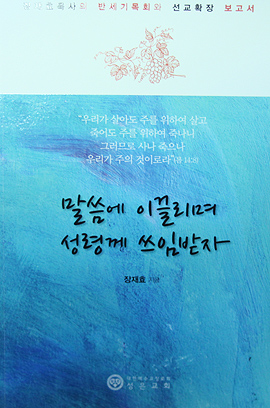 목사의 반세기목회와 선교확장 보고서
"우리가 살아도 주를 위하여 살고
죽어도 주를 위하여 죽나니
그러므로 사나 죽으나
우리가 주의 것이로라"(롬 14:8)
말씀에 이끌리며
성령께 쓰임받자
장재효 지음
성은교회